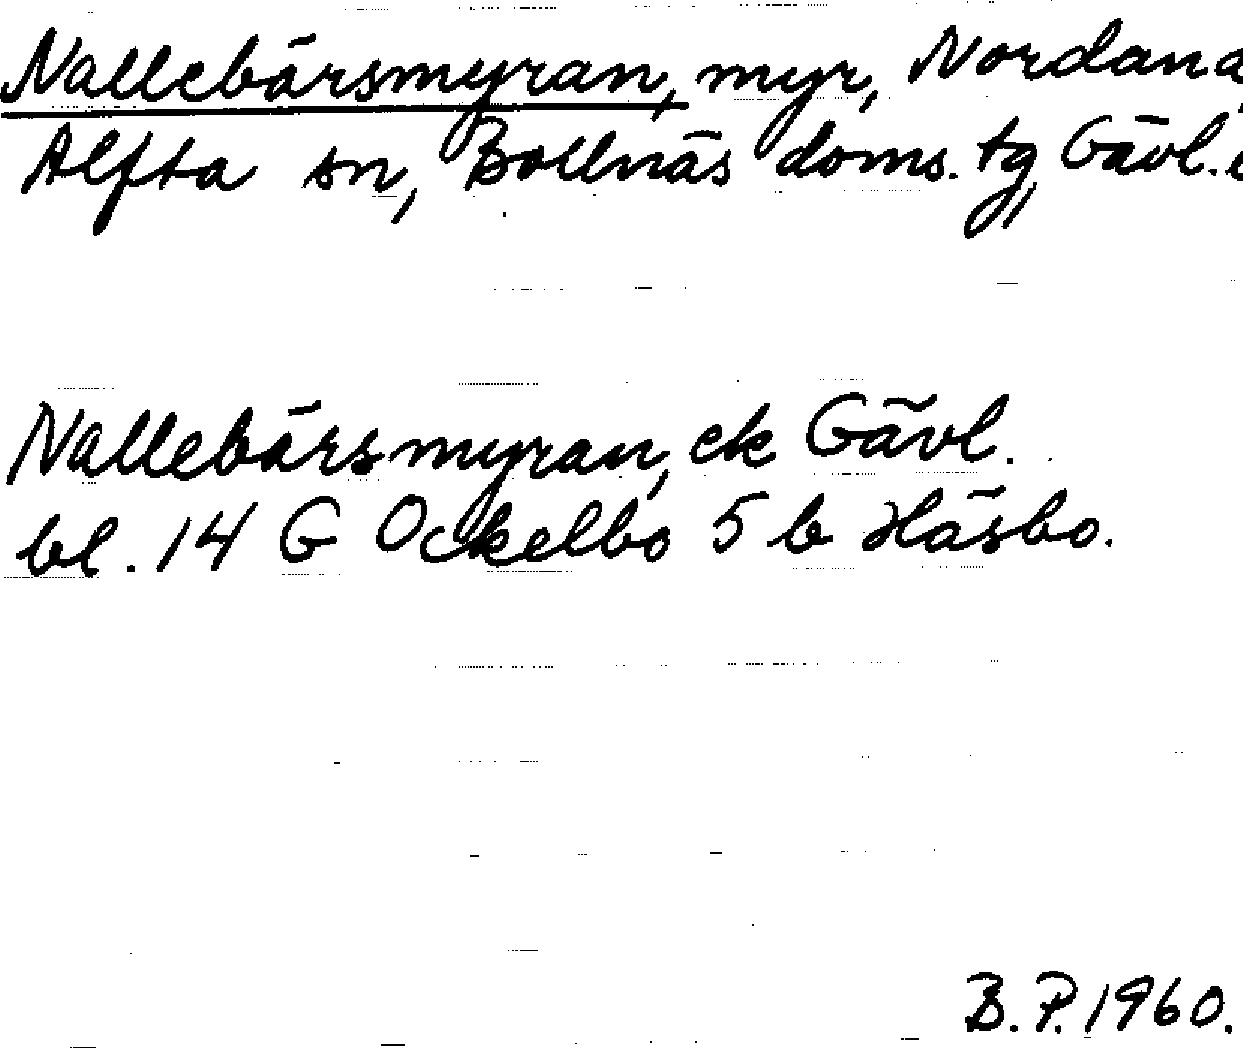 Nallebärsmyran, myr, Nordana,
Alfta sn, Bollnäs doms. tg, Gävl.
Nallebärsmyran, ek Gävl.
bl. 14 G Ockelbo 5 b Häsbo.
B. P. 1960.